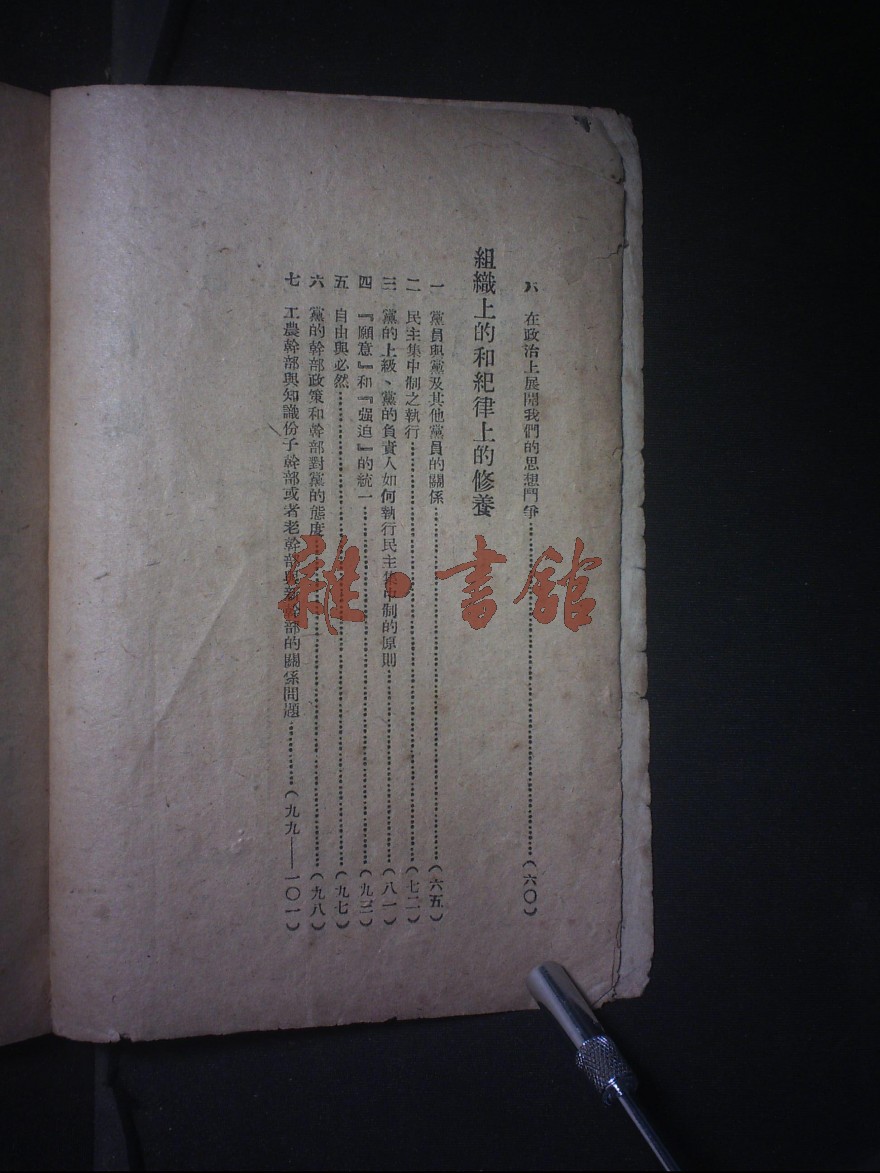 六　在政治上展開我們的思想鬥爭……（六〇）
組織上的和紀律上的修養
一　黨員與黨及其他黨員的關係……（六五）
二　民主集中制之執行……（七二）
三　黨的上級、黨的負責人如何執行民主集中制的原則……（八一）
四　『願意』和『强迫』的統一……（九三）
五　自由與必然……（九七）
六　黨的幹部政策和幹部對黨的態度……（九八）
七　工農幹部與知識份子幹部或者老幹部與新幹部的關係問題……（九九——一〇一）
雜·書館